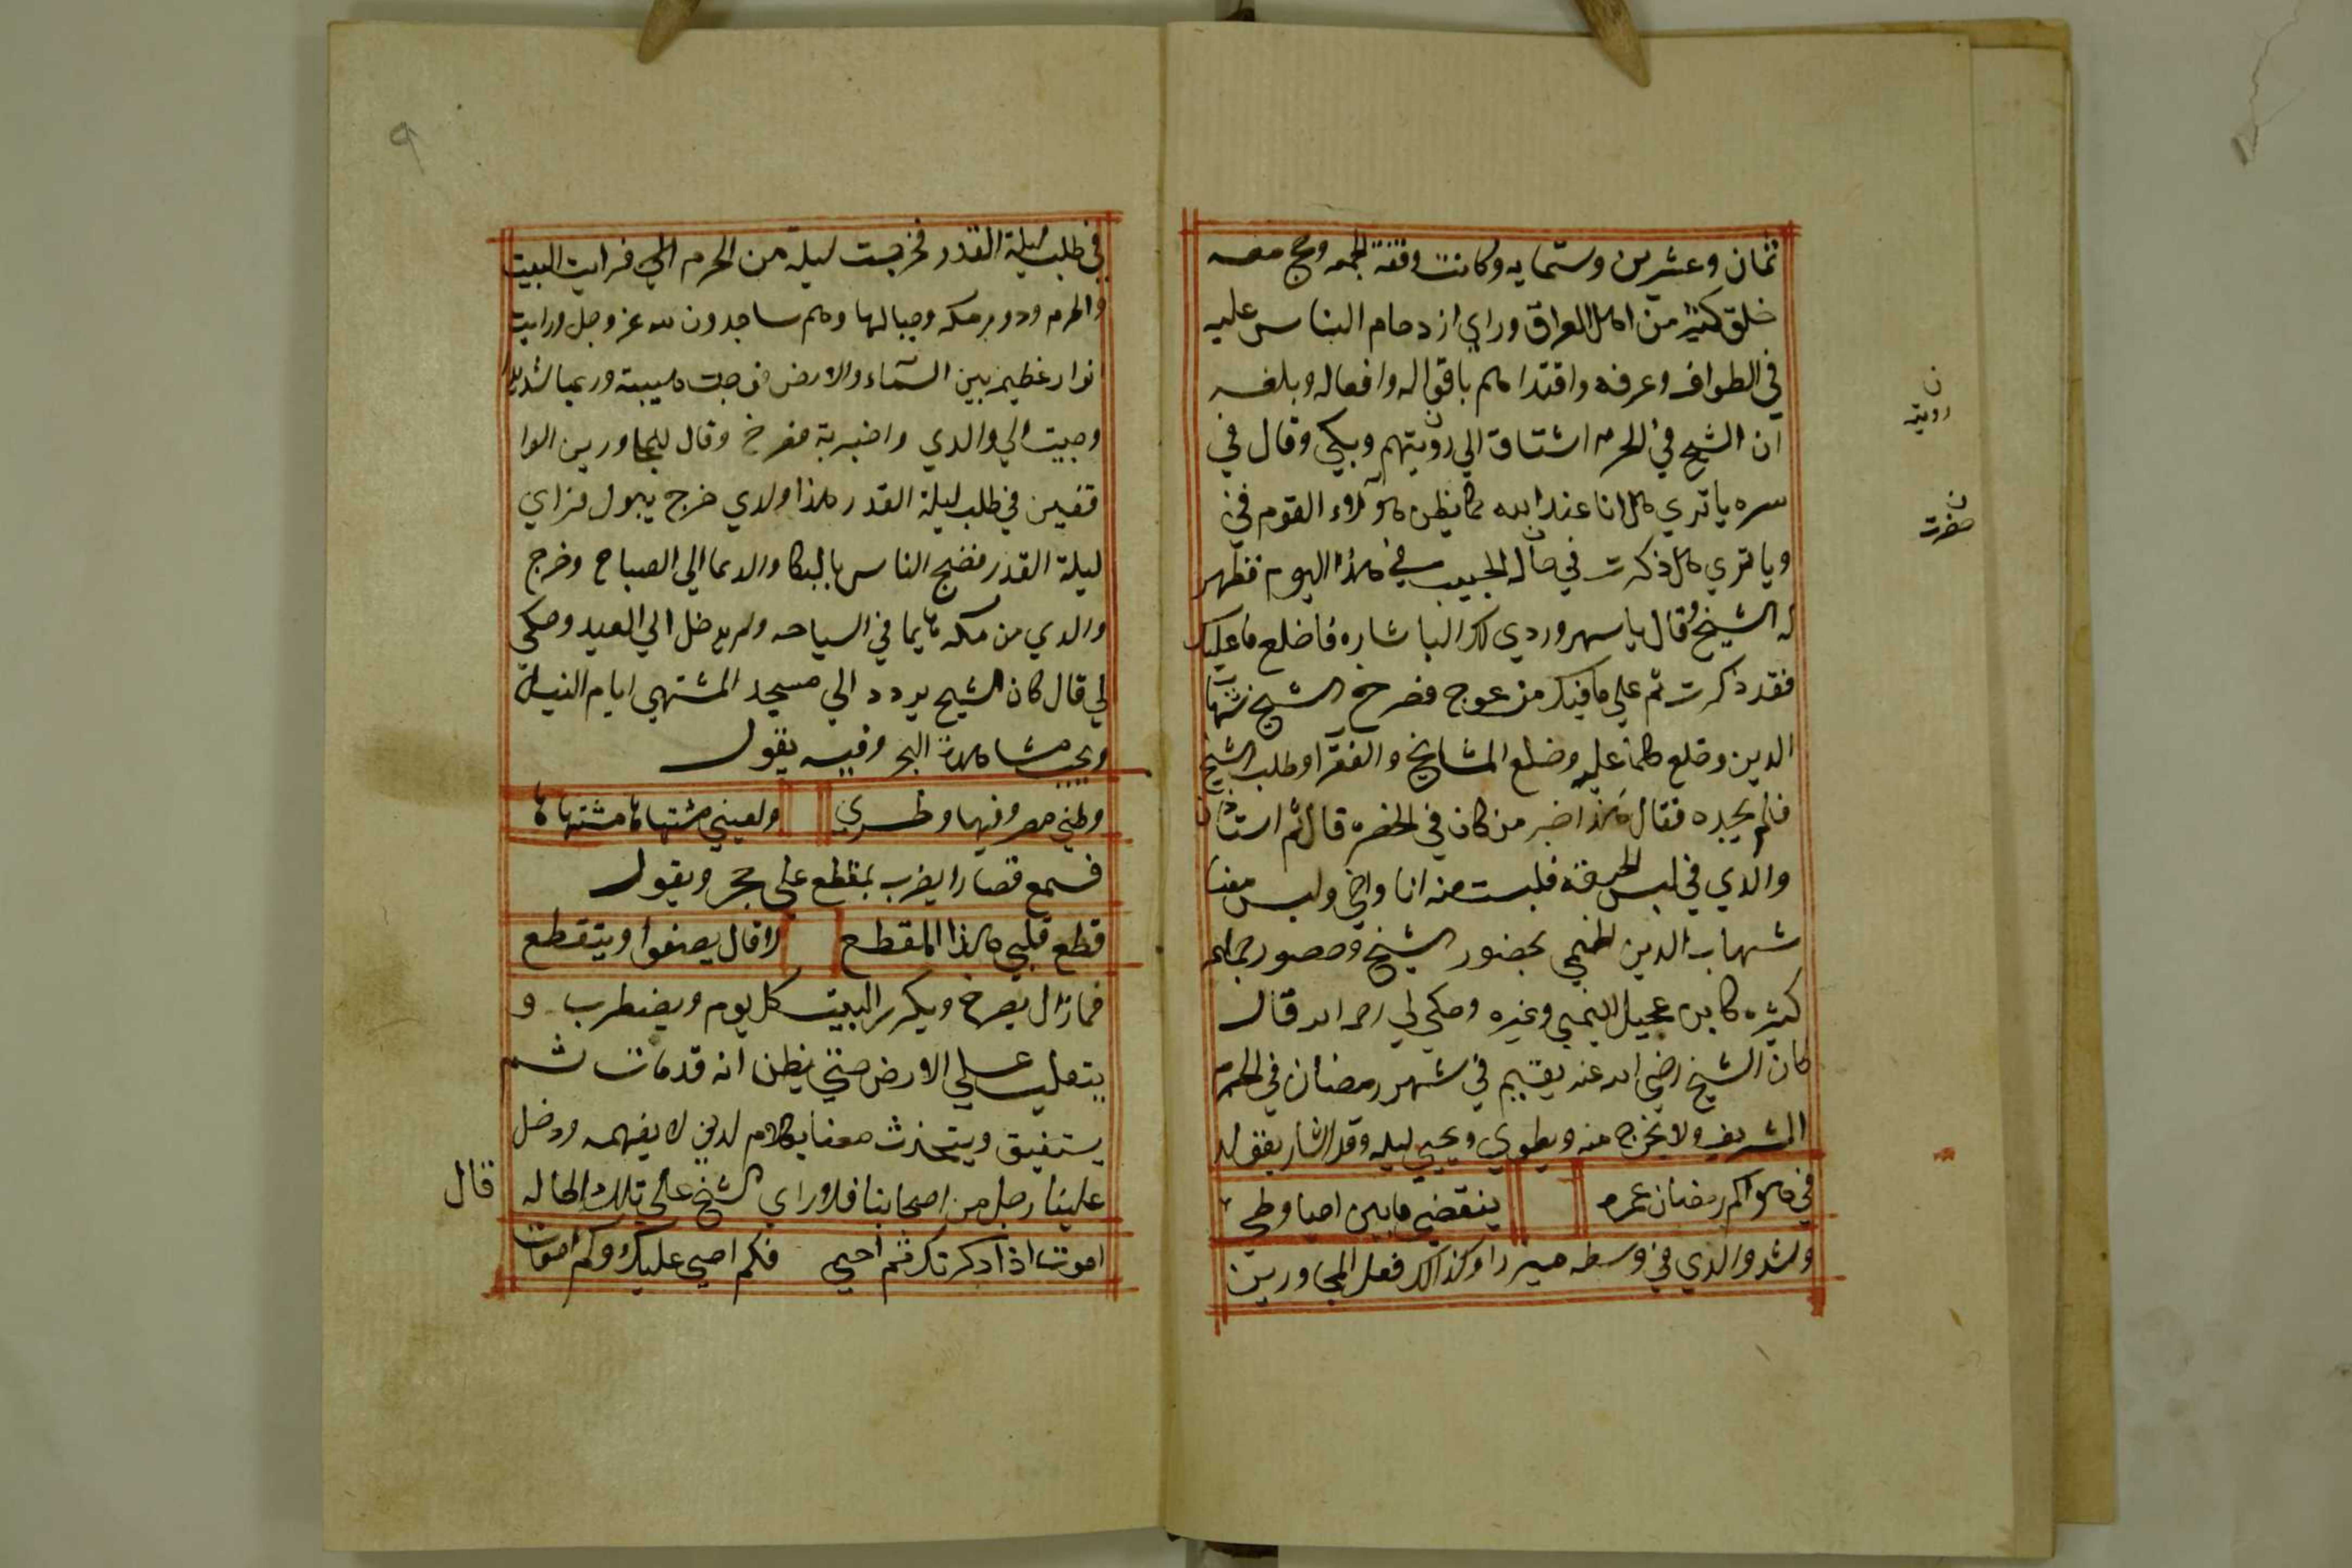 ثمان وعشرين وستمايه وكانت وقفة الجمعه وحج معه
خلق كثير من اهل العراق وراي ازدحام الناس عليه
في الطواف وعرفه واقتداهم باقواله وافعاله وبلغه
ان الشيخ في الحرم اشتاق الي رؤيتهم وبكي وقال في
سره ياتري هل انا عند الله كما يظن هؤلاء القوم في
وياتري هل ذكرت في حاله الحبيب في هذا اليوم فظهر
له الشيخ وقال ياسهروردي لك البا شاره فاخلع ماعليك
فقد ذكرت ثم علي مافيك من عوج فصرخ الشيخ شهاب
الدين وخلع كلما عليه وخلع المشايخ والفقرا وطلب الشيخ
فلم يجده فقال هذا اخبر من كان في الحضره قال ثم استاذن
والدي في لبس الخرقه فلبست منه انا واخي ولبس معنا
شهاب الدين الخيمي بحضور الشيخ وحضور جماعه
كثيره كابن عجيل اليمني وغيره وحكي لي رحمه الله قال
كان الشيخ رضي الله عنه يقيم في شهر رمضان في الحرم
الشريف ولا يخرج منه ويطوي ويحيي ليله وقد اشار بقوله
في هواكم رمضان عمره ينقضي مابين احيا وطي
وشد والدي في وسطه ميزرا وكذالك فعل المجاورين
ن
رويته
ن
حضرت
٩
في طلب ليلة القدر فخرجت ليلة من الحرم الي فرايت البيت
والحرم ودور مكه وجبالها وهم ساجدون لله عز وجل ورايت
انوار عظيمه بين السماء والارض فرجت هيبة ورعبا شديدا
وجيت الي والدي واخبرته فصرخ وقال للمجاورين الوا
قفين في طلب ليلة القدر هذا ولدي خرج يبول فراي
ليلة القدر فضج الناس بالبكا والدعا الي الصباح وخرج
والدي من مكه هايما في السياحه ولم يدخل الي العيد وحكي
لي قال كان الشيخ يردد الي مسجد المشتهي ايام النيل
ويحب مشاهدة البحر وفيه يقول
وطني مصر وفيها وطري ولعيني مشتهاها مشتهاها
فسمع قصارا يضرب بمقطع علي حجر ويقول
قطع قلبي هذا المقطع لا قال يصفوا ويتقطع
فمازال يصرخ ويكرر البيت كل يوم ويضطرب و
يتقلب علي الارض حتي يظن انه قد مات ثم
يستفيق ويتحدث معنا بكلام لدني لا يفهمه ودخل
علينا رجل من اصحابنا فلا وراي الشيخ علي تلك الحاله
اموت اذا ذكرتك ثم احيي فكم احيي عليك وكم اموت
قال